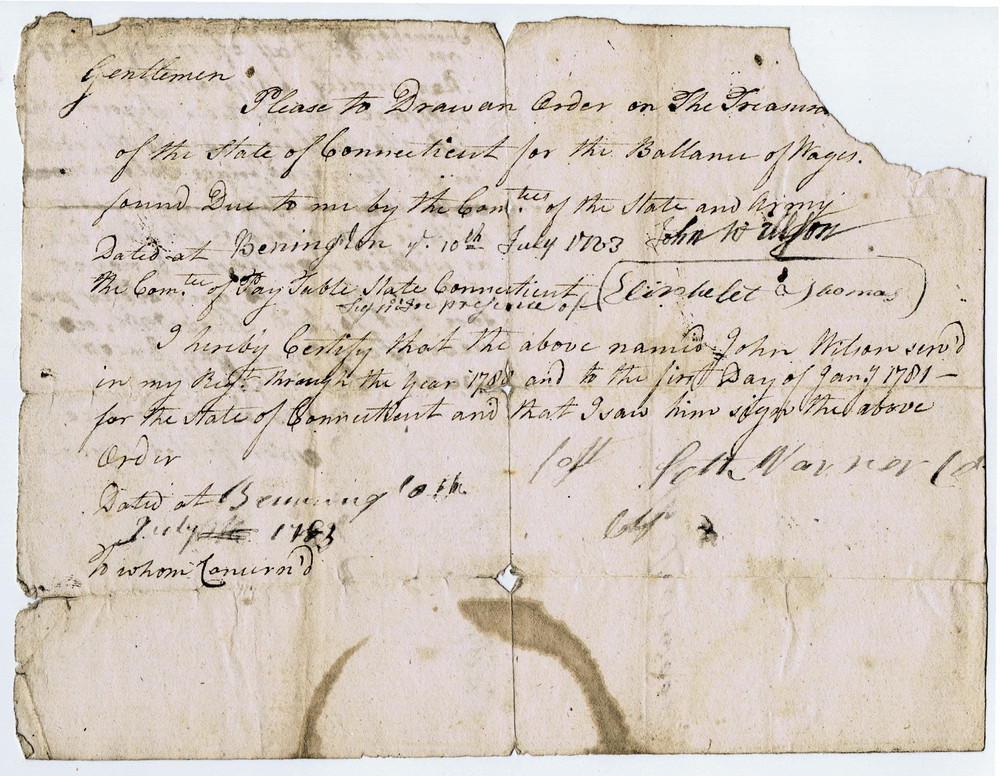 Gentlemen
Please to Draw an Order on The Treasur
of the State of Connecticut for the Ballance of Wages.
found Due to me by the Com.tees of the State and Army
Dated at Benington ye. 10th July 1783 John Wilson
the Com.tee of Pay Table State Connecticut
Sign'd In presence of Thomas
I hereby Certify that the above named John Wilson serv'd
in my Regt. through the Year and to the first Day of Jany 1781 –
for the State of Connecticut and that I saw him sign the above
Order
Seth Warner Col
Dated at Bennington
July 1783
To whom Concern'd